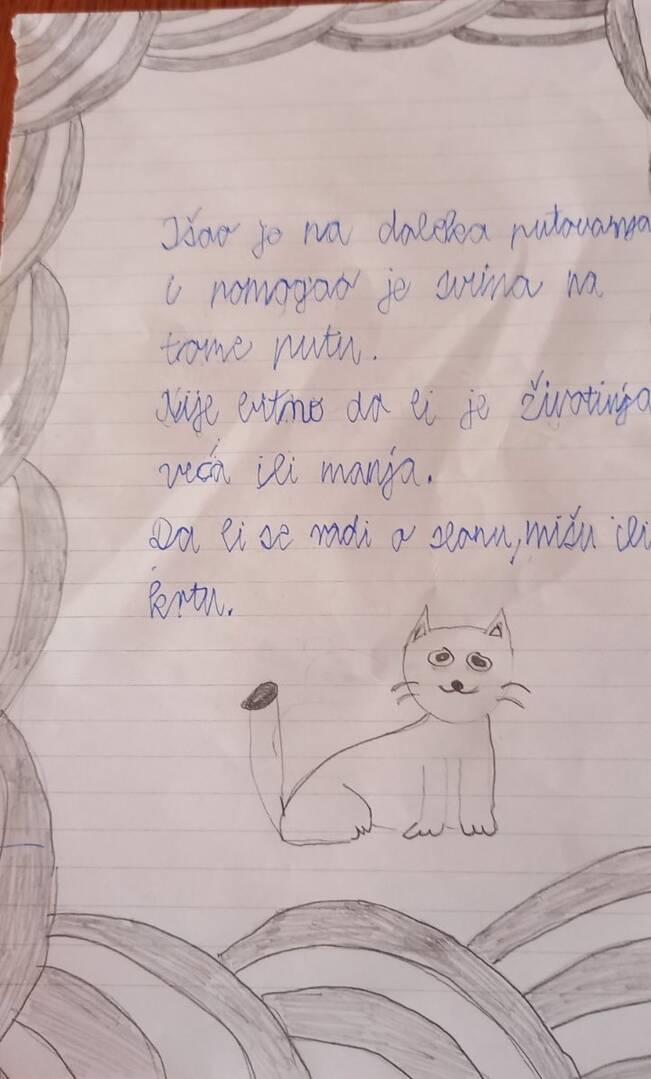 Išao je na daleka putovanja
i pomogao je svima na
tome putu.
Nije bitno da li je životinja
veća ili manja.
Da li se radi o slonu, mišu ili
krtu.